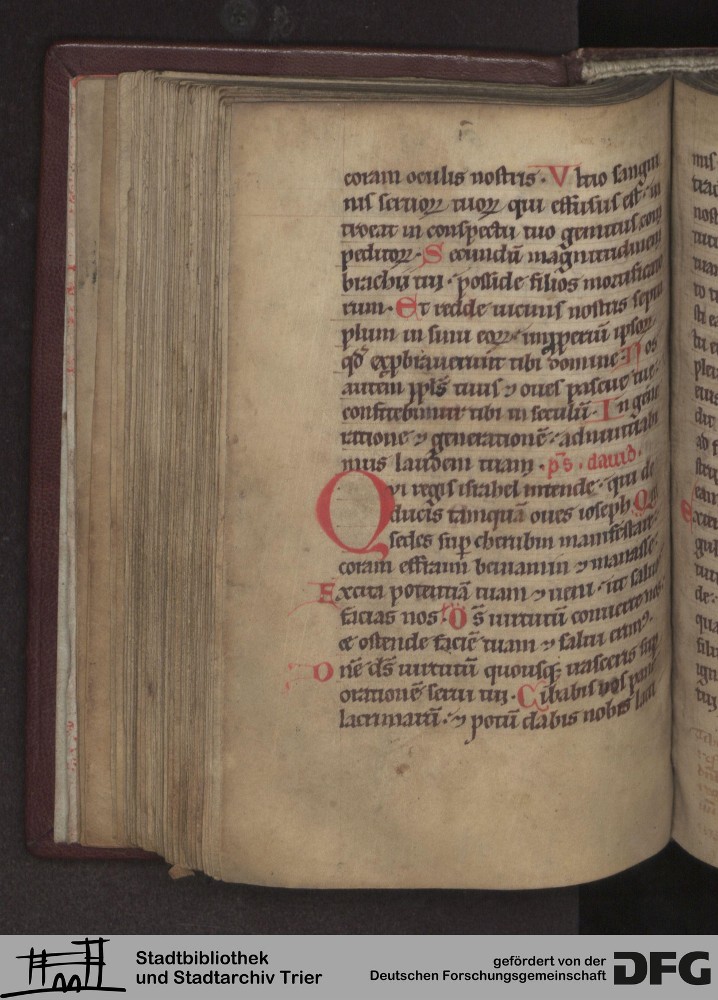 coram oculis nostris · Vltio sangui
nis sctõꝝ tuoꝝ qui effusus est · in
troeat in conspectu tuo gemitus com
peditoꝝ · Secundũ magnitudinem
brachij tuj · posside filios mortificato
rum · Et redde uicinis nostris septu
plum in sinu eoꝝ · inpꝑeriũ ipsoꝝ
qd̃ exprbrauerunt tibi domine · Nos
autem ppl̃s tuus ⁊ oues pascue tue ·
confitebimur tibi in seculũ · In gene
ratione ⁊ generationẽ · adnuntiabi
mus laudem tuam · ps̃ · dauid ·
Qvi regis israhel intende · qui de
ducis tamquã oues ioseph Qui
sedes suꝑ cherubin manifestare
coram effraim beniamin ⁊ manasse ·
Excita potentiã tuam ⁊ ueni · ut saluos
facias nos · Ds̃ uirtutũ conuerte nos ·
et ostende faciẽ tuam ⁊ salui erimꝰ ·
Dnẽ ds̃ uirtutũ quousqꝫ irasceris suꝑ
orationẽ serui tuj · Cibabis nos pane
lacrimarũ · ⁊ potũ dabis nobis lacri
Stadtbibliothek
und Stadtarchiv Trier
gefördert von der
Deutschen Forschungsgemeinschaft
DFG